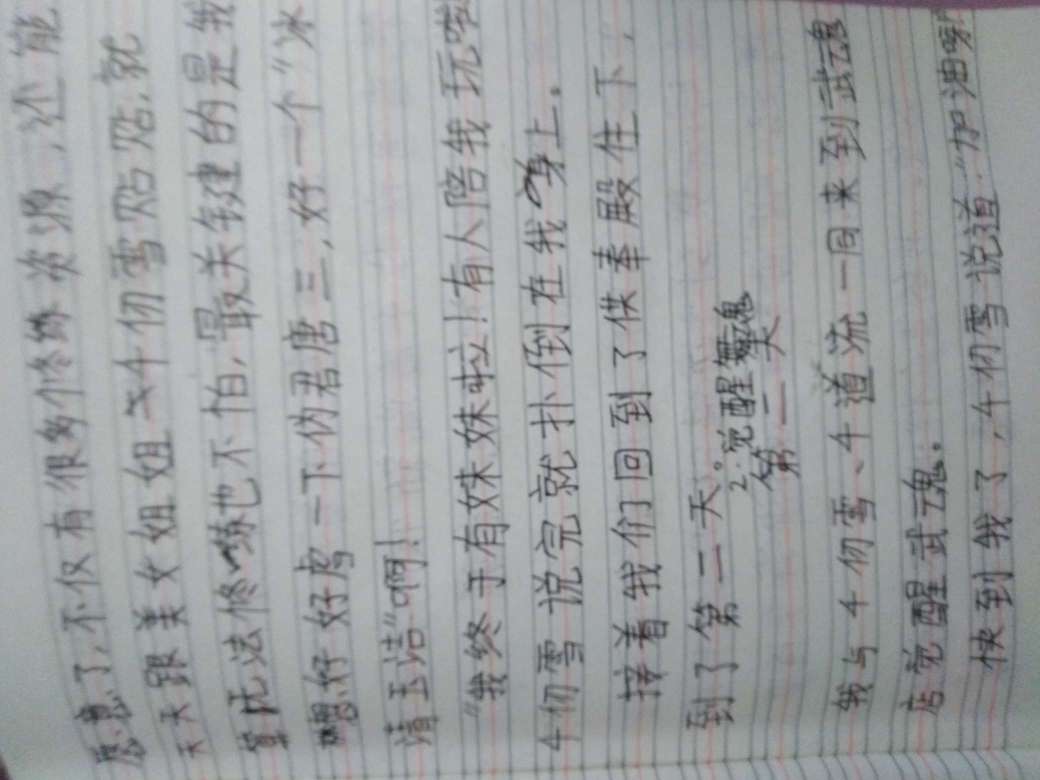 愿意了，不仅有很多修练资源，还能
天天跟美女姐姐千仞雪贴贴，就
算无法修练也不怕，最关键的是我
想好好虐一下伪君唐三，好一个“冰
清玉洁”啊！
“我终于有妹妹啦！有人陪我玩啦
千仞雪说完就扑倒在我身上。
接着我们回到了供奉殿住下，
到了第二天。
2.觉醒舞魂
第二天
我与千仞雪、千道流一同来到武魂
店觉醒武魂。
快到我了，千仞雪说道：“加油呀